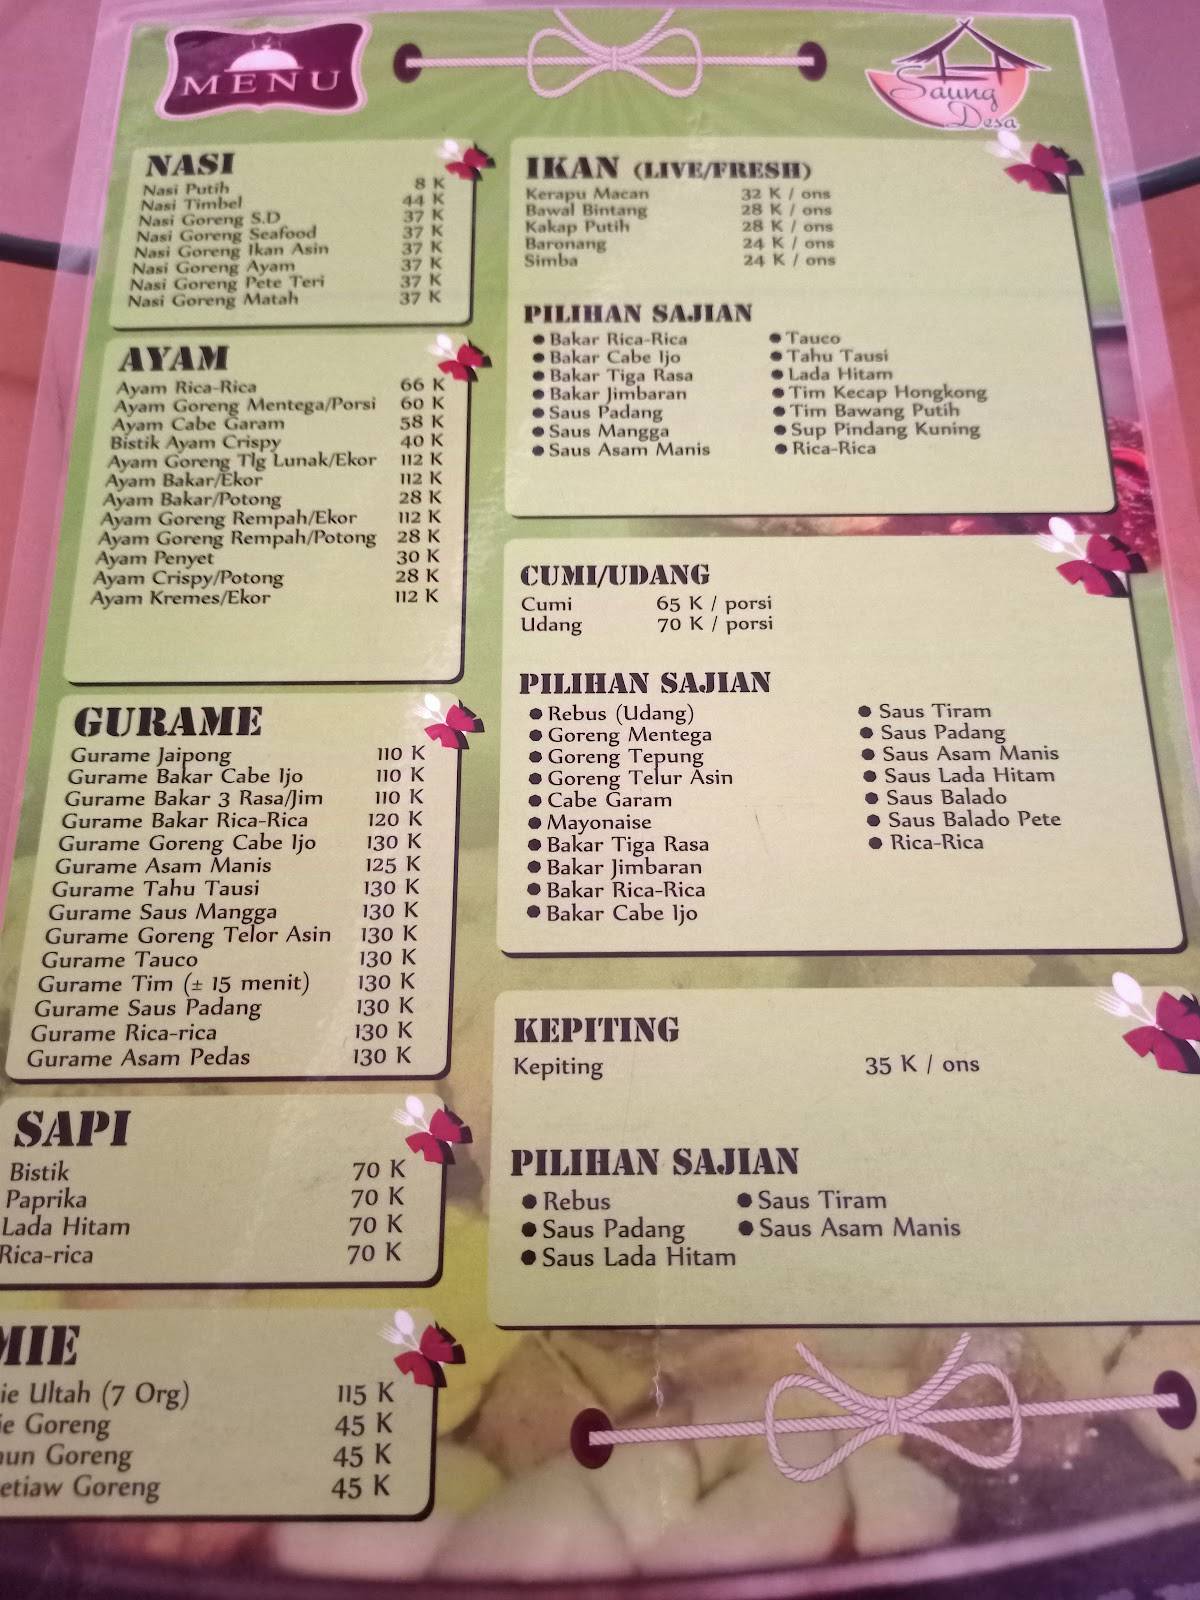 MENU
Saung
Desa
NASI
Nasi Putih 8 K
Nasi Timbel 44 K
Nasi Goreng S.D 37 K
Nasi Goreng Seafood 37 K
Nasi Goreng Ikan Asin 37 K
Nasi Goreng Ayam 37 K
Nasi Goreng Pete Teri 37 K
Nasi Goreng Matah 37 K
AYAM
Ayam Rica-Rica 66 K
Ayam Goreng Mentega/Porsi 60 K
Ayam Cabe Garam 58 K
Bistik Ayam Crispy 40 K
Ayam Goreng Tlg Lunak/Ekor 112 K
Ayam Bakar/Ekor 112 K
Ayam Bakar/Potong 28 K
Ayam Goreng Rempah/Ekor 112 K
Ayam Goreng Rempah/Potong 28 K
Ayam Penyet 30 K
Ayam Crispy/Potong 28 K
Ayam Kremes/Ekor 112 K
GURAME
Gurame Jaipong 110 K
Gurame Bakar Cabe Ijo 110 K
Gurame Bakar 3 Rasa/Jim 110 K
Gurame Bakar Rica-Rica 120 K
Gurame Goreng Cabe Ijo 130 K
Gurame Asam Manis 125 K
Gurame Tahu Tausi 130 K
Gurame Saus Mangga 130 K
Gurame Goreng Telor Asin 130 K
Gurame Tauco 130 K
Gurame Tim (± 15 menit) 130 K
Gurame Saus Padang 130 K
Gurame Rica-rica 130 K
Gurame Asam Pedas 130 K
SAPI
Bistik 70 K
Paprika 70 K
Lada Hitam 70 K
Rica-rica 70 K
MIE
ie Ultah (7 Org) 115 K
ie Goreng 45 K
hun Goreng 45 K
etiaw Goreng 45 K
IKAN (LIVE/FRESH)
Kerapu Macan 32 K / ons
Bawal Bintang 28 K / ons
Kakap Putih 28 K / ons
Baronang 24 K / ons
Simba 24 K / ons
PILIHAN SAJIAN
● Bakar Rica-Rica ● Tauco
● Bakar Cabe Ijo ● Tahu Tausi
● Bakar Tiga Rasa ● Lada Hitam
● Bakar Jimbaran ● Tim Kecap Hongkong
● Saus Padang ● Tim Bawang Putih
● Saus Mangga ● Sup Pindang Kuning
● Saus Asam Manis ● Rica-Rica
CUMI/UDANG
Cumi 65 K / porsi
Udang 70 K / porsi
PILIHAN SAJIAN
● Rebus (Udang) ● Saus Tiram
● Goreng Mentega ● Saus Padang
● Goreng Tepung ● Saus Asam Manis
● Goreng Telur Asin ● Saus Lada Hitam
● Cabe Garam ● Saus Balado
● Mayonaise ● Saus Balado Pete
● Bakar Tiga Rasa ● Rica-Rica
● Bakar Jimbaran
● Bakar Rica-Rica
● Bakar Cabe Ijo
KEPITING
Kepiting 35 K / ons
PILIHAN SAJIAN
● Rebus ● Saus Tiram
● Saus Padang ● Saus Asam Manis
● Saus Lada Hitam